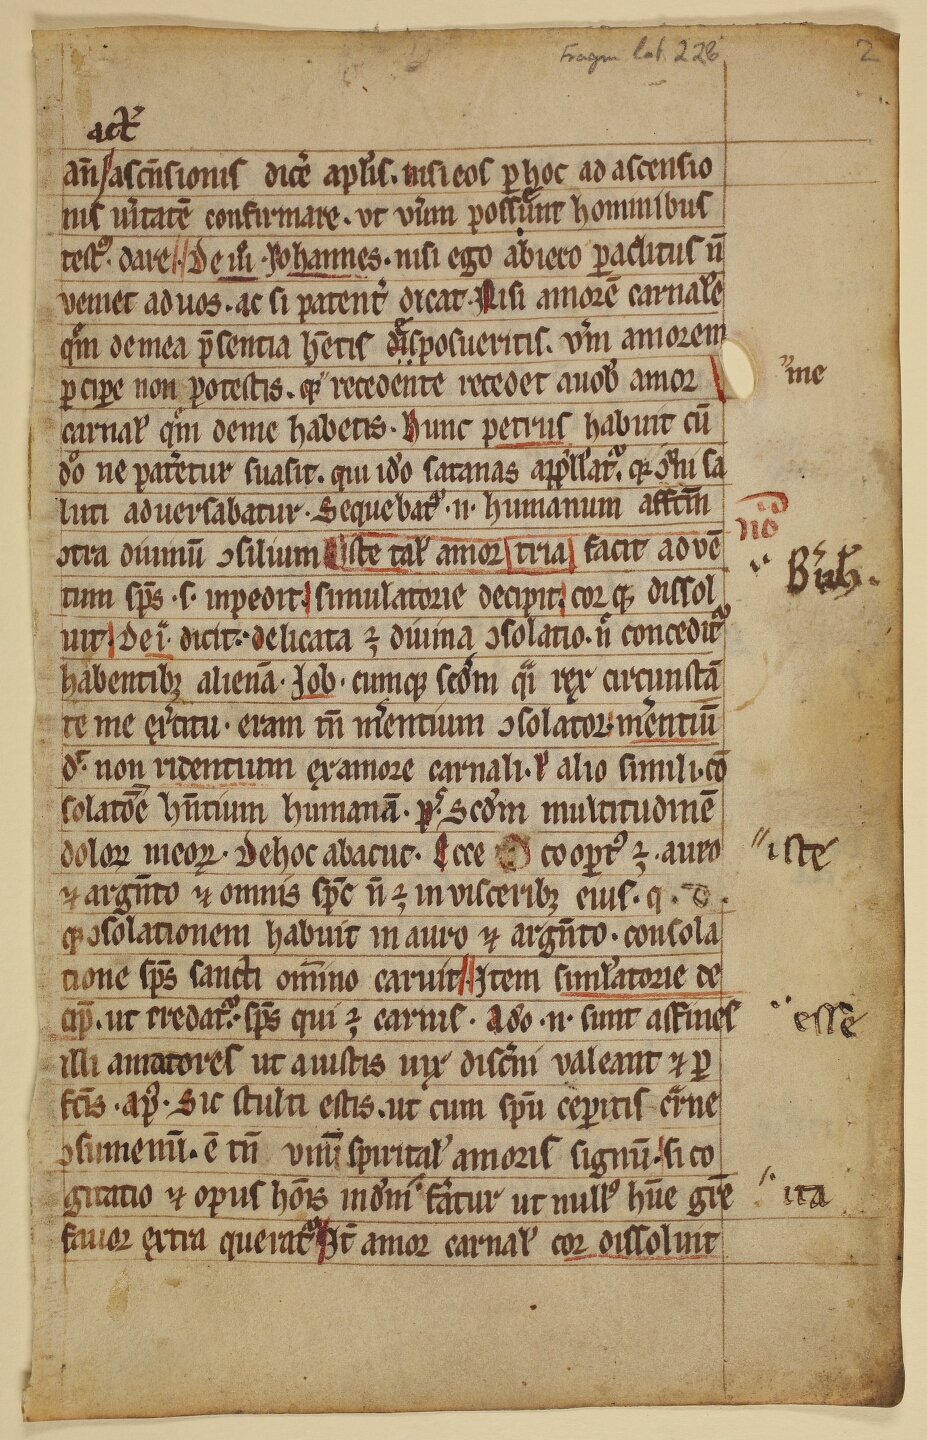 Fragm lat. 228
2
act᷑
an̄ ascēsionis dicē apl̄is. nisi eos ꝑ hoc ad ascensio
nis ūitatē confirmare. vt vr̄m possunt hominibus
testꝰ. dare De iii. Iohannes. nisi ego abiero paclitus n̄
veniet ad uos. ac si patent̓ dicat. Nisi amorē carnalē
qͣm de mea p̄sentia hētis disposueritis. vr̄m amorem
ꝑcipe non potestis. qꝫ recedente recedet a uob̄ amor
me
carnal̓ qͣm de me habetis. Hunc petrus habuit cū
dō ne pateretur suasit. qui idō satanas appellatꝰ. qꝫ dn̄i sa
luti adversabatur. Sequebatꝰ .n. humanum affctm̄
ↄtra diuinū ↄsilium Iste tal̓ amor tria facit aduē
tum sp̄s .s. inpedit. simulatorie decipit. cor qꝫ dissol
uit De i. dicit. delicata ⁊ diuina ↄsolatio. n̄ conceditꝰ
habentibꝫ alienā. Job. cumqꝫ sedm̄ qͣi rex circunstā
te me ex̓citu. eram tn̄ m̓entium ↄsolator. m̓entiū
d̓. non ridentium ex amore carnali. l̓ alio simili. cō
solatōē hn̄tium humanā. pͥ. Scd̄m multitudinē
dolorꝝ meorꝝ. De hoc abacuc. Ecce
coop̓tꝰ ⁊ . auro
iste
⁊ argn̄to ⁊ omnis sp̄c n̄ ⁊ in visceribꝫ eius. q. d.
qꝫ ↄsolationem habuit in auro ⁊ argn̄to. consola
tione sp̄s sancti omīno caruit Item simľatorie de
cip̄. ut credatꝰ. sp̄s qui ⁊ carnis. Ado .n. sunt affines
esse
illi amatores ut a iustis uix disc̓ni valeant ⁊ ꝑ
fc̄is. apͦ. Sic stulti estis. ut cum sp̄u ceperitis c̓ne
ↄsumemī. ē tn̄ vnū spirital̓ amoris signū. si co
gitatio ⁊ opus hōis in dn̄i fatur ut nullꝰ hūe gr̄e
ita
fauor extra queratꝰ It̄ amor carnal̓ cor dissoluit